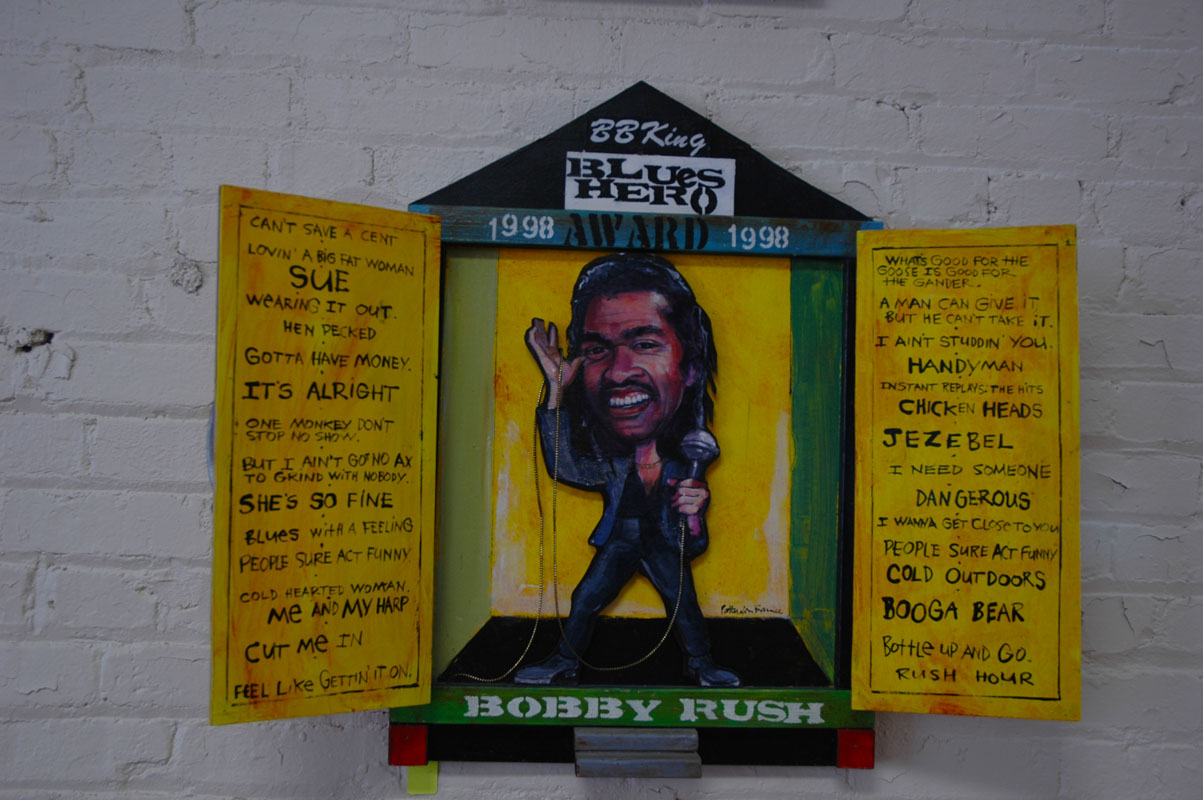 BB King
BLUES
HERO
1998 AWARD 1998
CAN'T SAVE A CENT
LOVIN' A BIG FAT WOMAN
SUE
WEARING IT OUT.
HEN PECKED
GOTTA HAVE MONEY.
IT'S ALRIGHT
ONE MONKEY DON'T
STOP NO SHOW.
BUT I AIN'T GOT NO AX
TO GRIND WITH NOBODY.
SHE'S SO FINE
BLUES WITH A FEELING
PEOPLE SURE ACT FUNNY.
COLD HEARTED WOMAN.
ME AND MY HARP
CUT ME IN
FEEL LIKE GETTIN' IT ON.
WHAT'S GOOD FOR THE
GOOSE IS GOOD FOR
THE GANDER.
A MAN CAN GIVE IT
BUT HE CAN'T TAKE IT.
I AIN'T STUDDIN' YOU.
HANDYMAN
INSTANT REPLAYS: THE HITS
CHICKEN HEADS
JEZEBEL
I NEED SOMEONE
DANGEROUS
I WANNA GET CLOSE TO YOU
PEOPLE SURE ACT FUNNY
COLD OUTDOORS
BOOGA BEAR
BOTTLE UP AND GO.
RUSH HOUR
BOBBY RUSH